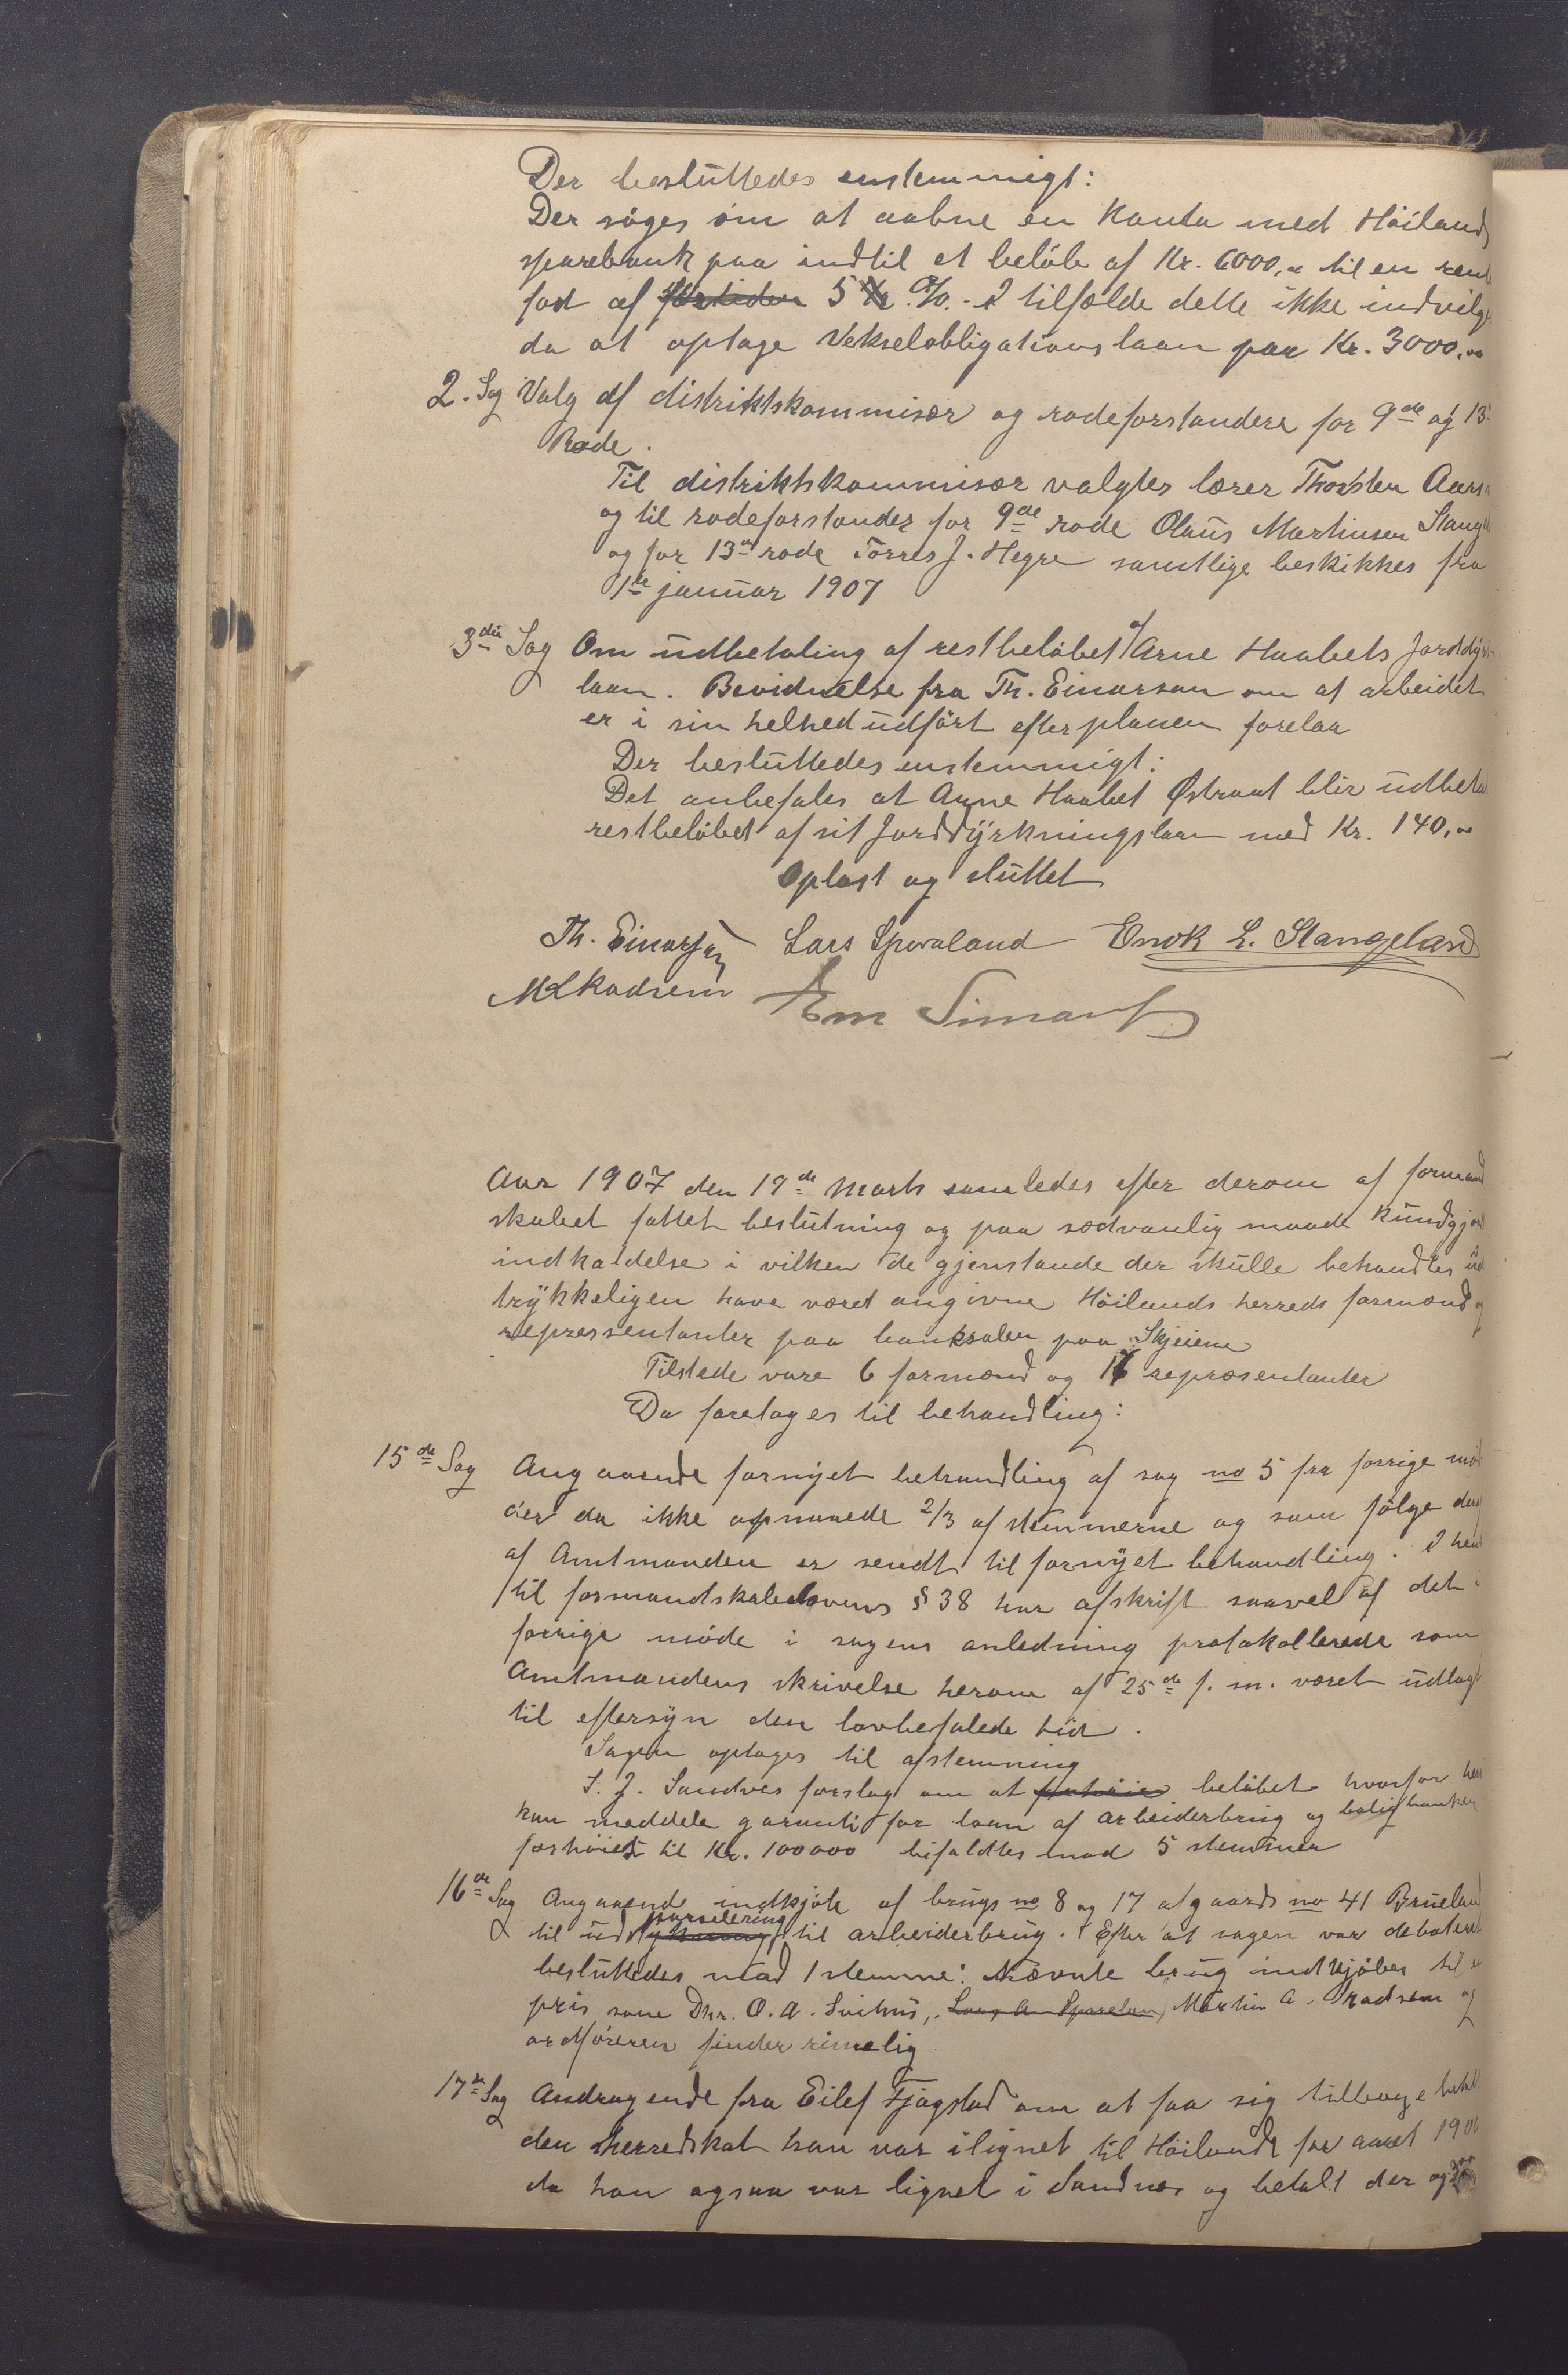 Der besluttedes enstemmigt:
Der søges om at aabne en Konto med Høilands
sparebank paa indtil et beløb af Kr. 6000,00 til en rente
fod af fortiden 5 % - I tilfælde dette ikke indvilges
da at optage Vekselobligationslaan paa Kr. 3000,00
2. Sag Valg af distriktskommisær og rodeforstandere for 9de og 13de
Rode.
Til distriktskommisær valgtes lærer Thorsten Aars
og til rodeforstander for 9de rode Olaus Martinsen Stangel
og for 13de rode Torres J. Hegre samtlige beskikkes fra
1ste januar 1907
3die Sag Om udbetaling af restbeløbet af Arne Haabets Jorddyrk
laan. Bevidnelse fra Th. Einarsen om at arbeidet
er i sin helhed udført efter planen forelaa
Der besluttedes enstemmigt:
Det anbefales at Arne Haabet Østraat blir udbetalt
restbeløbet af sit Jorddyrkningslaan med Kr. 140,00
Oplæst og sluttet
Th. Einarsen Lars Sporaland Enok L. Stangeland
M Skadsem
Aar 1907 den 19de Marts samledes efter derom af formand
skabet fattet beslutning og paa sædvanlig maade kundgjort
indkaldelse i vilken de gjenstande der skulle behandles ud
trykkeligen have været angivne Høilands herreds formænd og
repræsentanter paa banksalen paa Skjeiene
Tilstede vare 6 formænd og 17 repræsentanter
Da foretoges til behandling:
15de Sag Angaaende fornyet behandling af sag no 5 fra forrige mø
der da ikke opnaaede 2/3 af stemmerne og som følge deraf
af Amtmanden er sendt til fornyet behandling. I hen
til formandskabslovens § 38 har afskrift saavel af det i
forrige møde i sagens anledning protokollerede som
Amtmandens skrivelse herom af 25de f. m. været udlagt
til eftersyn den lovbefalede tid.
Sagen optages til afstemning
S. J. Sandves forslag om at forhøie beløbet hvorfor her
kan meddele garanti for laan af arbeiderbrug og boligbanken
forhøies til Kr. 100000 bifaldtes mod 5 stemmer
16de Sag Angaaende indkjøb af brugs no 8 og 17 af gaards no 41 Brueland
parselering
til ud til arbeiderbrug. Efter at sagen var debatteret
besluttedes mod 1 stemme: Nævnte brug indkjøbes til en
pris som Dhr. O. A. Svihus, Lars A. Sporaland, Martin A. Skadsem og
ordføreren finder rimelig
17de Sag Andragende fra Eilef Fjøgstad om at faa sig tilbagebetalt
den herredskat han var ilignet til Høiland for aaret 1906
da han ogsaa var lignet i Sandnes og betalt der og